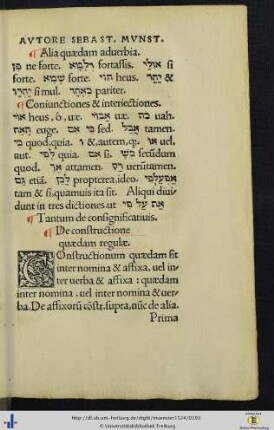 AVTORE SEBAST. MVNST.
¶ Alia quædam aduerbia.
פן ne forte. דלמא fortassis. אולי si
forte. שמא forte. הוי heus. יתר &
יחדו simul. באחד pariter.
¶ Coniunctiones & interiectiones.
אוי heus, ó, uæ. אבוי uæ. כה uah.
האח euge. אם si. אבל sed tamen.
כי quod, quia. ו &, autem, q; או uel,
aut. לפי quia. אם si. כפי secundum
quod. אך attamen. רק ueruntamen.
גם etiã. לכן propterea, ideo.
tam & si, quamuis ita sit. Aliqui diui
dunt in tres dictiones ut אף על פי
¶ Tantum de consignificatiuis.
¶ De constructione
quædam regulæ.
COnstructionum quædam sit
inter nomina & affixa, uel in
ter uerba & affixa: quædam
inter nomina, uel inter nomina & uer-
ba. De affixorũ cõstr. supra, nũc de alia.
Prima
http://dl.ub.uni-freiburg.de/diglit/muenster1524/0103
© Universitätsbibliothek Freiburg